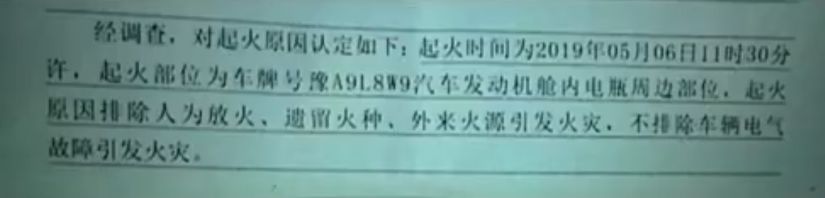 经调查，对起火原因认定如下：起火时间为2019年05月06日11时30分
许，起火部位为车牌号豫A9L8W9汽车发动机舱内电瓶周边部位，起火
原因排除人为放火、遗留火种、外来火源引发火灾，不排除车辆电气
故障引发火灾。